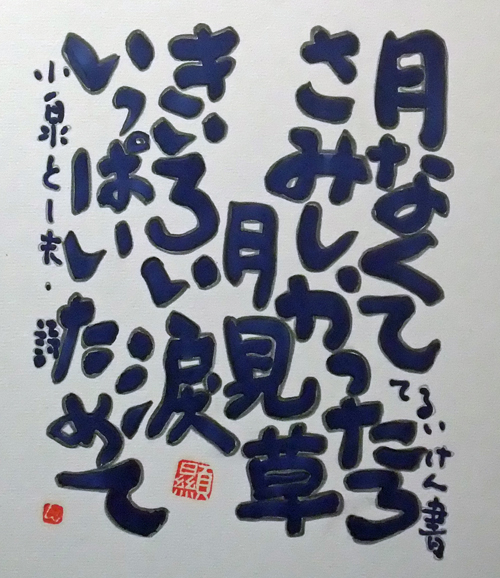 月なくて
さみしかったろ
月見草
きいろい涙
いっぱいためて
小泉とし夫・詩
てるいけん書
顯